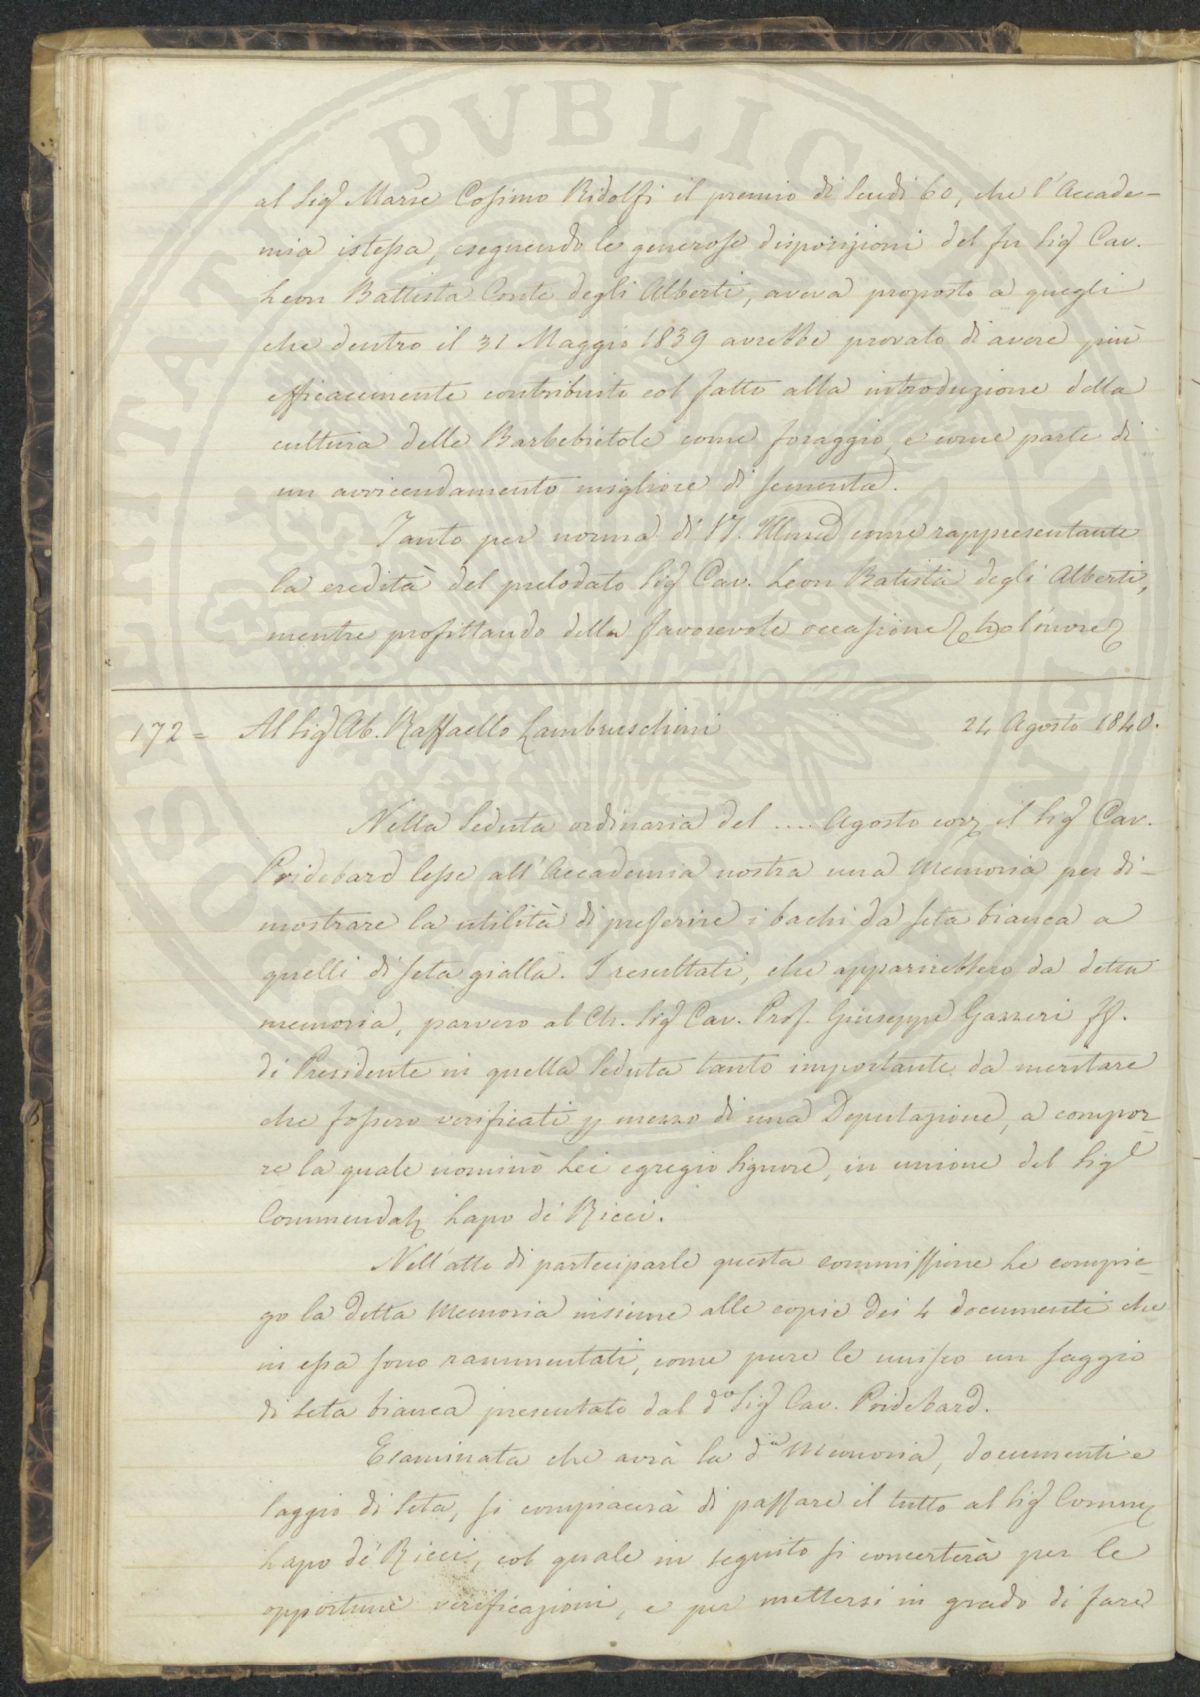 al Sig.r Marse Cosimo Ridolfi il premio di Scudi 60, che l'Accade-
mia istessa, eseguendo le generose disposizioni del fu Sig.r Cav.
Leon Battista Conte degli Alberti, aveva proposto a quegli
che dentro il 31 Maggio 1839 avrebbe provato di avere più
efficacemente contribuito col fatto alla introduzione della
cultura delle Barbebietole come foraggio, e come parte di
un avvicendamento migliore di sementa.
Tanto per norma di V.S. Illma come rappresentante
la eredità del prelodato Sig.r Cav. Leon Batista degli Alberti,
mentre profittando della favorevole occasione ho l'onore
172 = Al Sig.r Ab. Raffaello Lambruschini 24 Agosto 1840.
Nella Seduta ordinaria del .... Agosto corr.e il Sig.r Cav.
Pridebard lesse all'Accademia nostra una Memoria per di-
mostrare la utilità di preferire i bachi da seta bianca a
quelli di seta gialla. I resultati, che apparirebbero da detta
memoria, parvero al Ch. Sig.r Cav. Prof. Giuseppe Gazzeri ff.
di Presidente in quella Seduta tanto importante da meritare
che fossero verificati p mezzo di una Deputazione, a compor-
re la quale nominò Lei egregio Signore, in unione del Sig.r
Commendat.e Lapo de' Ricci.
Nell'atto di parteciparle questa commissione Le compie-
go la detta Memoria insieme alle copie dei 4 documenti che
in essa sono rammentati, come pure le unisco un saggio
di seta bianca presentato dal d.o Sig.r Cav. Pridebard.
Esaminata che avrà la d.a Memoria, documenti e
saggio di seta, si compiacerà di passare il tutto al Sig.r Comm.e
Lapo de' Ricci, col quale in seguito si concerterà per le
opportune verificazioni, e per mettersi in grado di fare
PVBLICAE